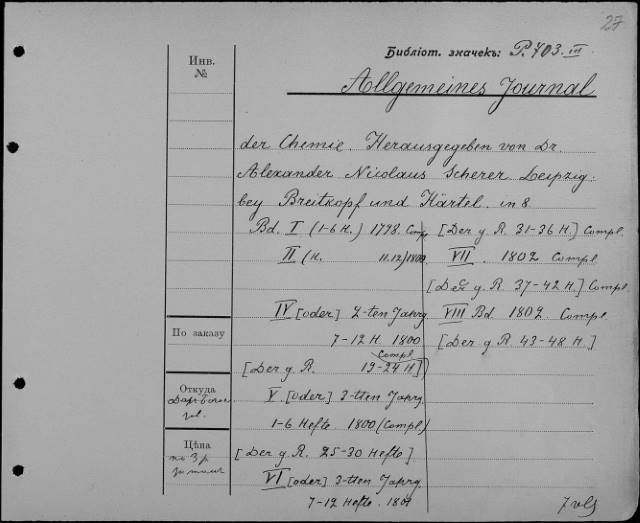 27
Библіот. значекъ: P.703.III.
Инв.
№
Allgemeines Journal
der Chemie. Herausgegeben von Dr.
Alexander Nicolaus Scherer Leipzig.
bey Breitkopf und Härtel. in 8
Bd. I (1-6 H.) 1798. Compl
II (H. 11.12) 1800.
IV [oder] 2-ten Jahrg
7-12 H. 1800
Compl
[Der g. R. 19-24 H]
V. [oder] 3-tten Jahrg
1-6 Hefte. 1800 (Compl)
[Der g. R. 25-30 Hefte]
VI [oder] 3-tten Jahrg
7-12 Hefte. 1801
[Der g. R. 31-36 H.] Compl.
VII. 1802 Compl
[Der g. R. 37-42 H.] Compl
VIII Bd. 1802. Compl
[Der g. R. 43-48 H.]
По заказу
Откуда
Цѣна
по 3 р
7 vls